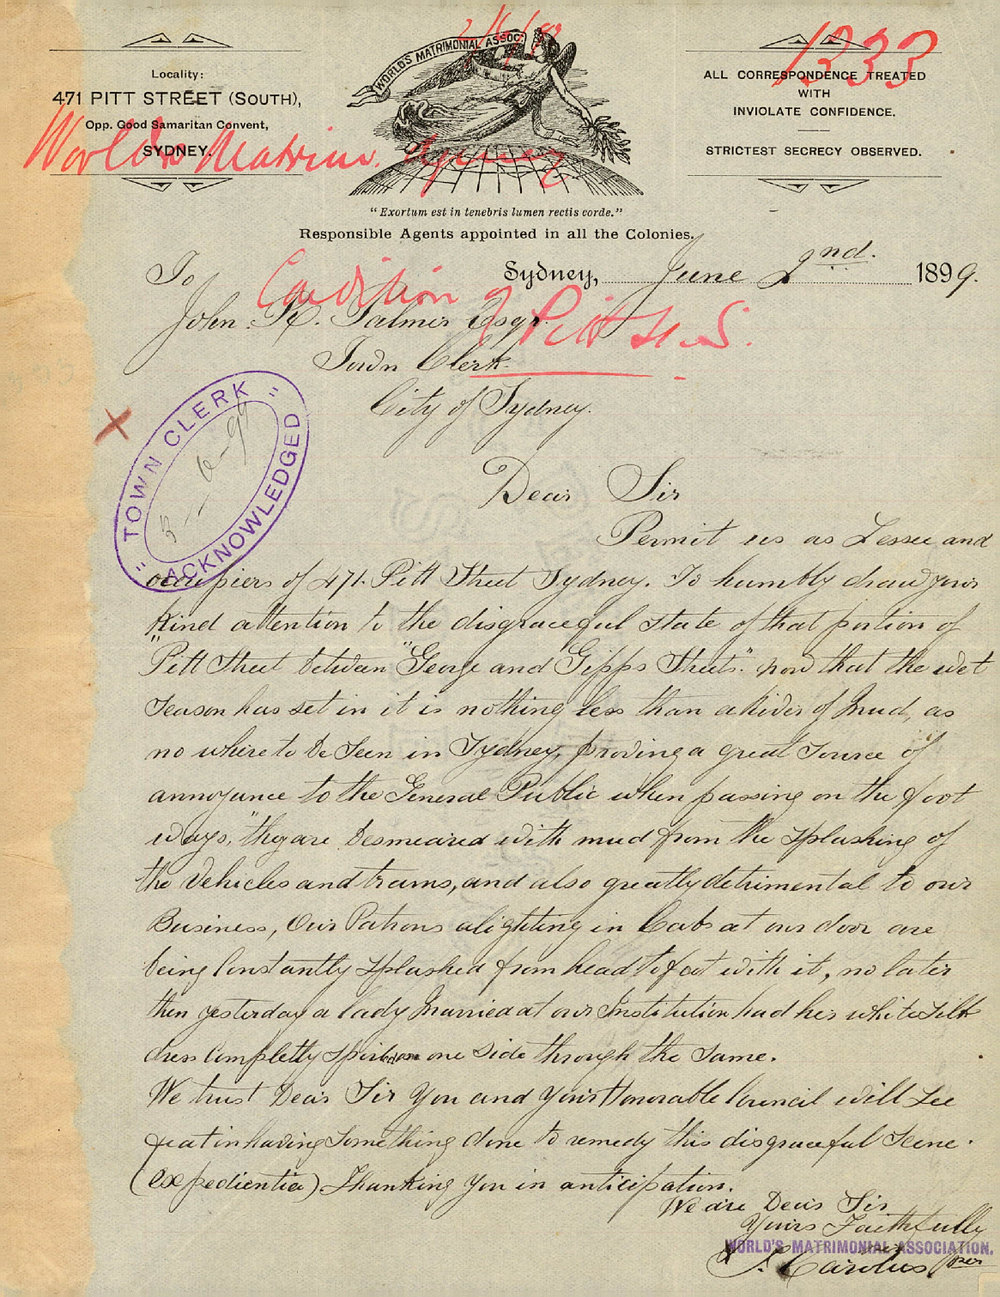 2/6/99
1333
WORLD'S MATRIMONIAL ASSOC:
Locality:
471 PITT STREET (SOUTH),
Opp. Good Samaritan Convent,
SYDNEY.
ALL CORRESPONDENCE TREATED
WITH
INVIOLATE CONFIDENCE.
STRICTEST SECRECY OBSERVED.
World's Matrim. Agency
"Exortum est in tenebris lumen rectis corde."
Responsible Agents appointed in all the Colonies.
Sydney, June 2nd. 1899.
Condition of Pitt St. S.
To
John R. Palmer Esqr.
Town Clerk.
City of Sydney.
TOWN CLERK
3-6-99
ACKNOWLEDGED
Dear Sir
Permit us as Lessee and
occupiers of 471. Pitt Street Sydney. To humbly draw your
Kind attention to the disgraceful state of that portion of
"Pitt Street between "George and Gipps Streets". now that the wet
Season has set in it is nothing less than a River of Mud, as
no where to be Seen in Sydney, proving a great Source of
annoyance to the General Public when passing on the foot
ways, they are besmeared with mud from the Splashing of
the Vehicles and trams, and also greatly detrimental to our
Business, Our Patrons alighting in Cabs at our door are
being Constantly Splashed from head to foot with it, no later
then yesterday a lady Married at our Institution had her white Silk
dress Completly Spoilt on one Side through the Same.
We trust Dear Sir You and Your Honorable Council will See
feat in having Something done to remedy this disgraceful Scene.
(expedientia) Thanking You in anticipation.
We are Dear Sir
Yours Faithfully
WORLD'S MATRIMONIAL ASSOCIATION.
Carolus per